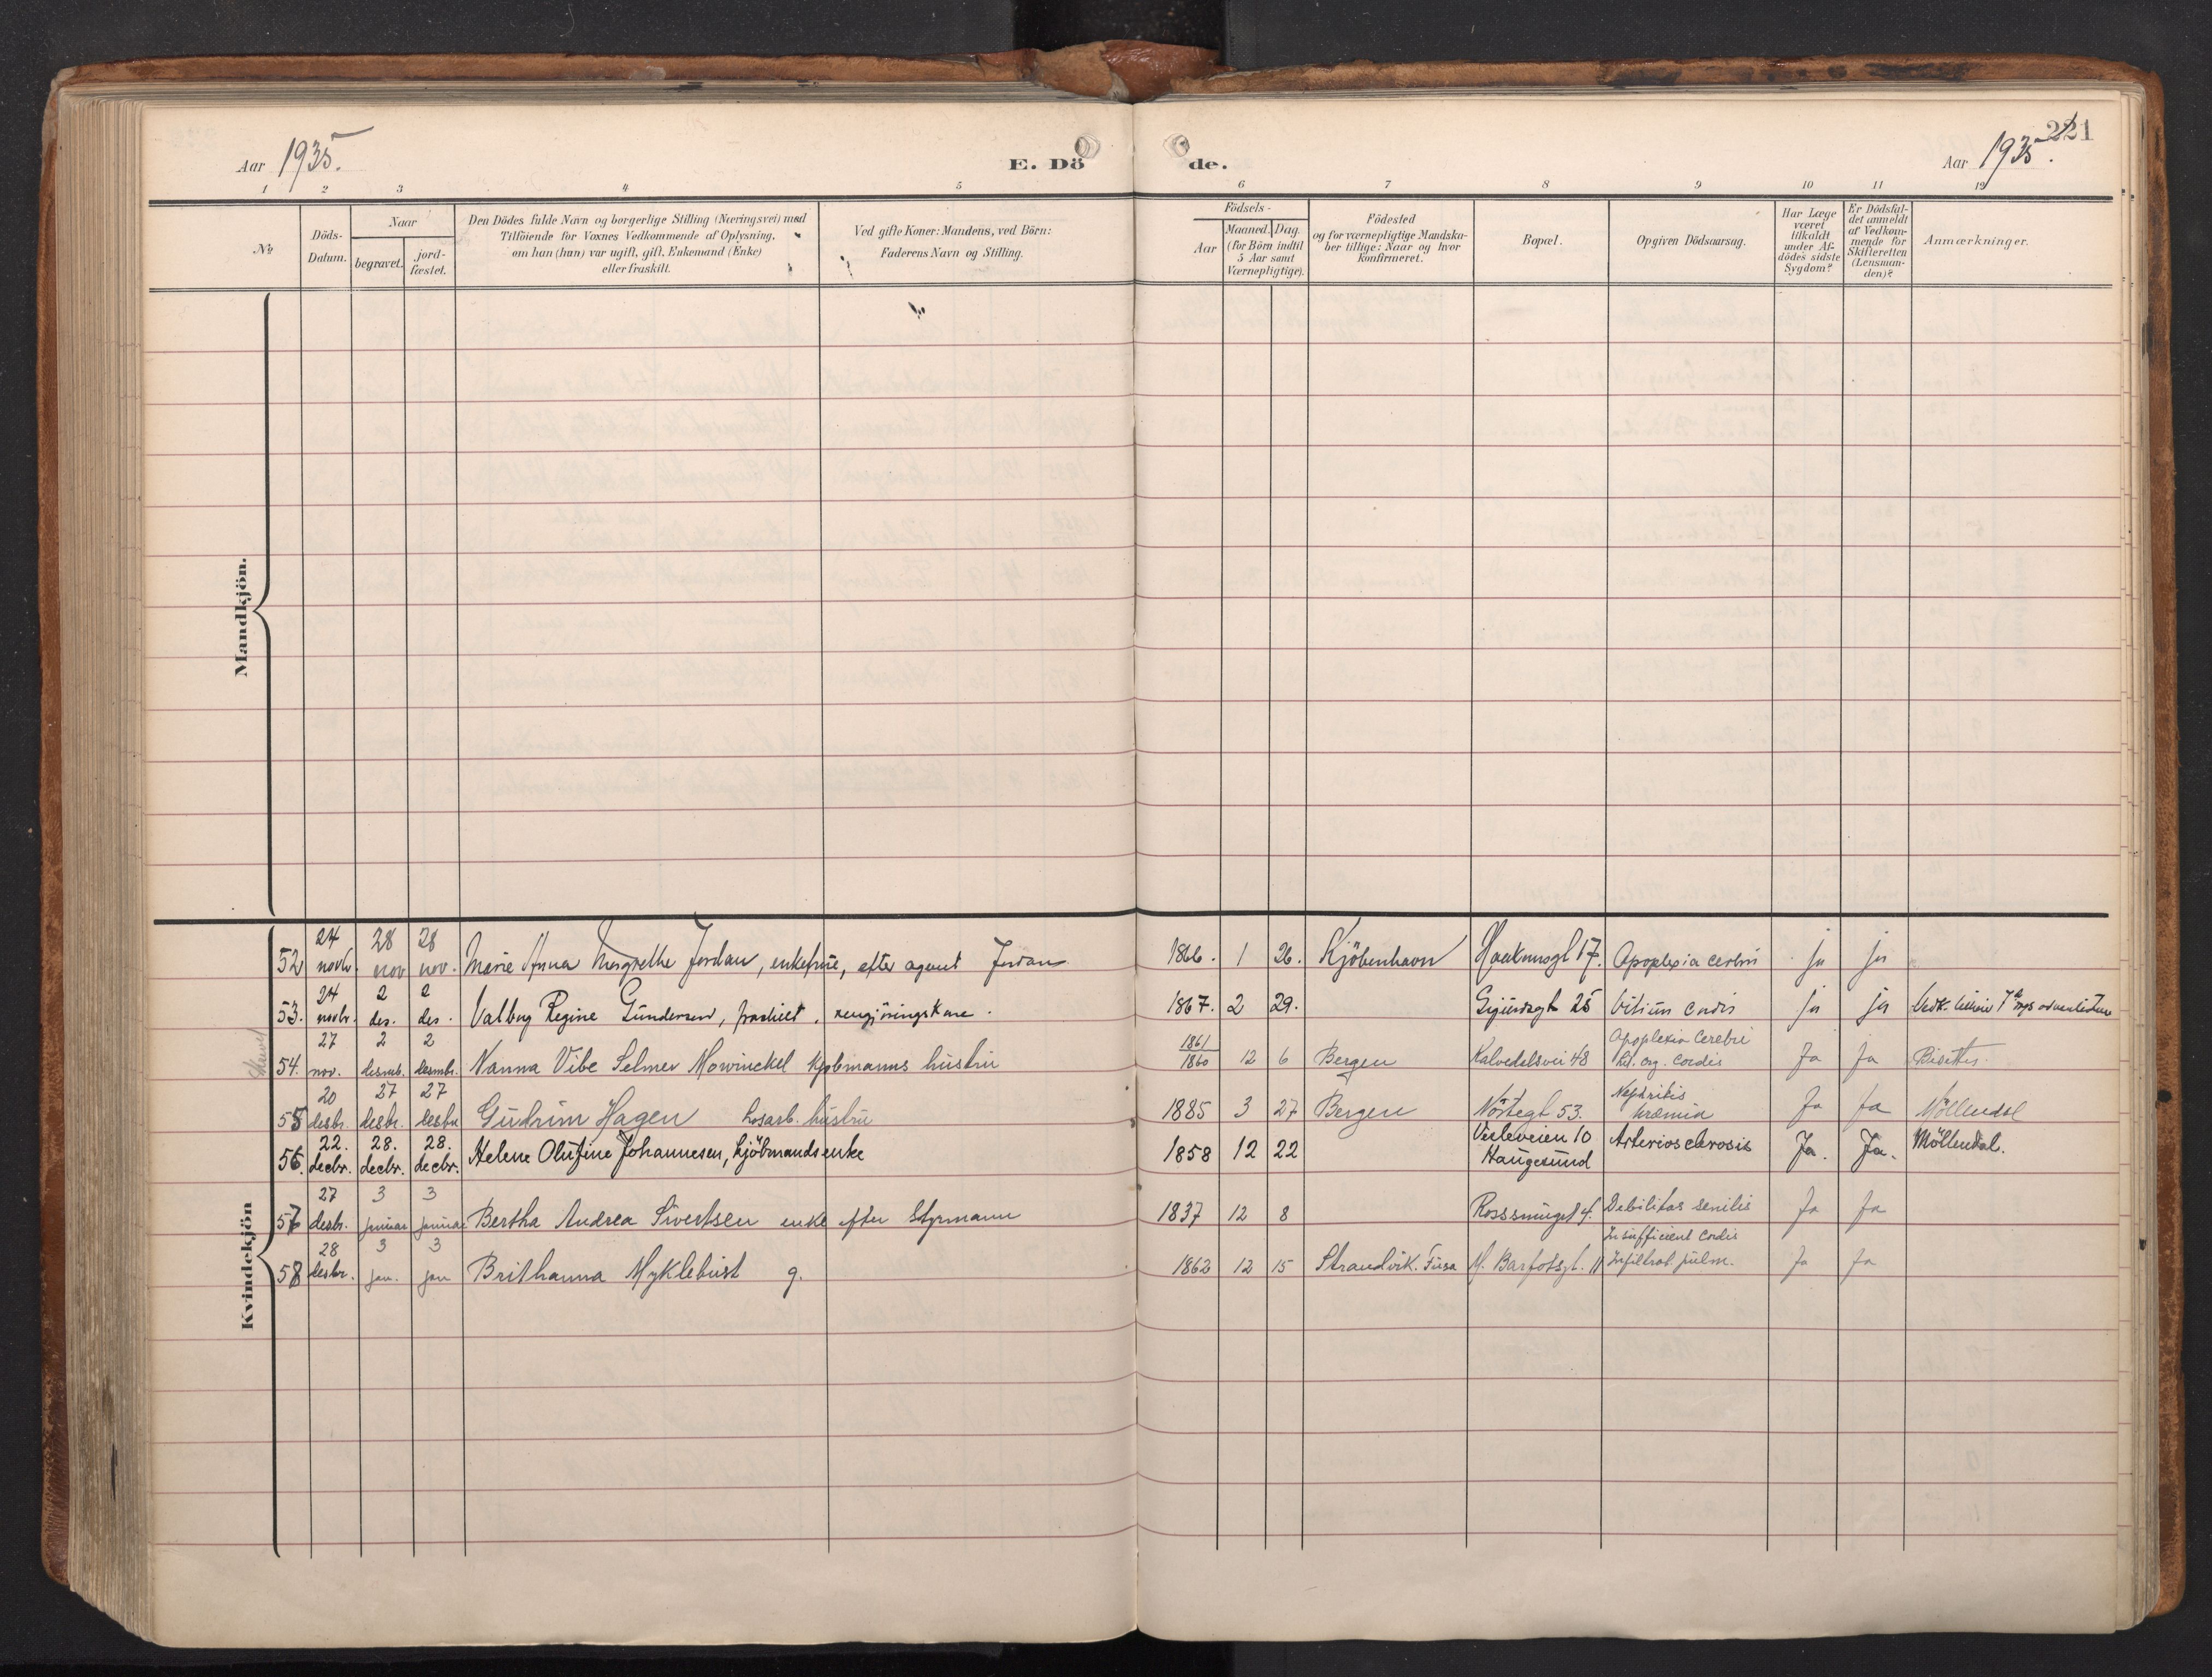 Aar 1935.
E. Döde.
Aar 1935.
221
1 2 3 4 5 6 7 8 9 10 11 12
No
Döds-Datum.
Naar
begravet.
jord-fæstet.
Den Dödes fulde Navn og borgerlige Stilling (Næringsvei) med
Tilföiende for Voxnes Vedkommende af Oplysning,
om han (hun) var ugift, gift, Enkemand (Enke)
eller fraskilt.
Ved gifte Koner: Mandens, ved Börn:
Faderens Navn og Stilling.
Födsels-
Aar
Maaned. Dag.
(for Börn indtil
5 Aar samt
Værnepligtige).
Födested
og for værnepligtige Mandska-
ber tillige: Naar og hvor
konfirmeret.
Bopæl.
Opgiven Dödsaarsag.
Har Læge
været
tilkaldt
under Af-
dödes sidste
Sygdom?
Er Dödsfal-
det anmeldt
af Vedkom-
mende for
Skifteretten
(Lensman-
den)?
Anmærkninger.
Mandkjön.
Kvindekjön
52 24 novbr. 28 nov 28 nov. Marie Anna Margrethe Jordan, enkefrue, efter agent Jordan 1866. 1 26. Kjöbenhavn 17. Apoplexia cerebri ja ja
53. 24 novbr. 2 des. 2 des. Valborg Regine Gundersen, fraskilt, rengjöringskone. 1867. 2 29. Sigurdsgt 25 Vitium Cordis ja ja
54. 27 nov. 2 desmb. 2 desmbr. Nanna Vibe Selmer Mowinckel kjøbmanns hustru 1861 1860 12 6 Bergen Kalvedalsvei 48 Apoplexia Cerebri org. Cordis Ja Ja Bisettes.
55 20 desbr. 27 desbr. 27 desbr Gudrun Hagen losarb. hustru 1885 3 27 Bergen Nöstegt 53. Nephritis Uræmia Ja Ja Möllendal
56. 22. decbr. 28. decbr. 28. decbr. Helene Olufine Johannesen, kjöbmandsenke 1858 12 22 10 Haugesund Arteriosclerosis Ja. Ja. Möllendal.
57 27 desbr. 3 januar 3 januar Bertha Andrea Sivertsen enke efter Styrmann 1837 12 8 Rosssmuget 4. Debilitas senilis Ja Ja
58 28 desbr. 3 jan. 3 jan Brithanna Myklebust g. 1862 12 15 Strandvik. Fusa M. Barfotsgt. 11 Insufficient Cordis Infiltrat. pulm. Ja Ja